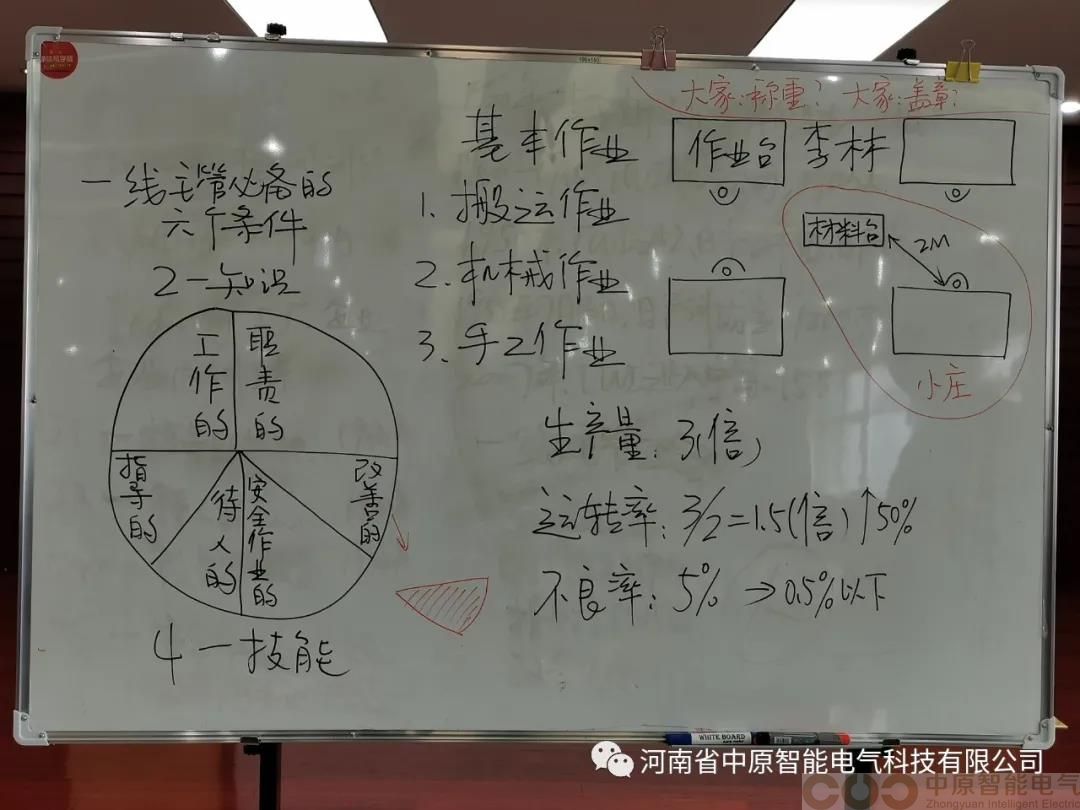 大家:称重? 大家:盖章?
一线主管必备的
六个条件
2一知识
工作的
职责的
指导的
待人的
安全作业的
改善的
4一技能
基本作业
1. 搬运作业
2. 机械作业
3. 手工作业
作业台
李林
材料台
2M
小庄
生产量: 3(倍)
运转率: 3/2=1.5(倍) ↑50%
不良率: 5% →0.5%以下
WHITE BOARD
河南省中原智能电气科技有限公司
中原智能电气
Zhongyuan Intelligent Electri